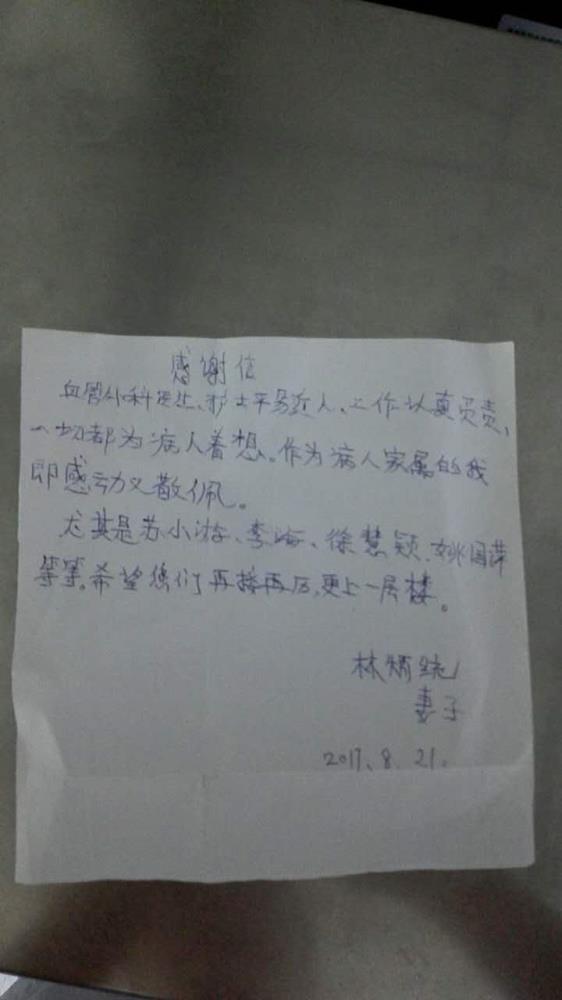 感谢信
血管外科医生、护士平易近人、工作认真负责,
一切都为病人着想。作为病人家属的我
即感动又敬佩。
尤其是苏小游、李海、徐慧颖、姚国萍
等等。希望您们再接再厉,更上一层楼。
林
妻子
2017、8.21.